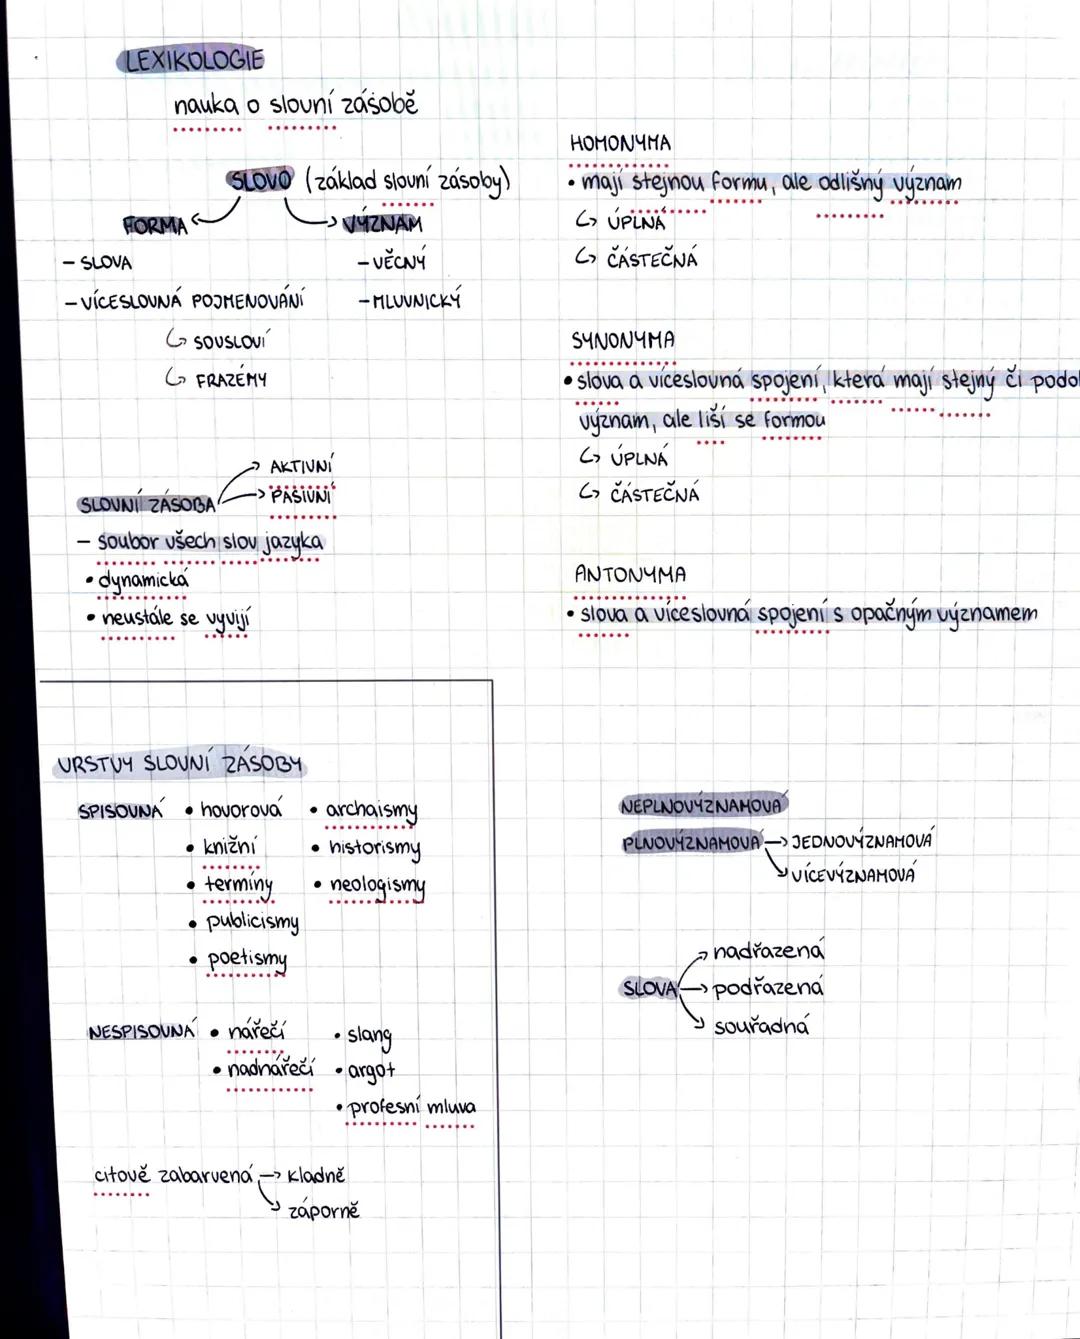 LEXIKOLOGIE
nauka o slovní zásobě
SLOVO (základ slovní zásoby)
FORMA
VÝZNAM
- SLOVA
- VĚCNÝ
- VÍCESLOVNÁ POJMENOVÁNÍ
- MLUVNICKÝ
↳ SOUSLOVÍ
↳ FRAZÉMY
→ AKTIVNÍ
→ PASIVNÍ
SLOVNÍ ZÁSOBA
- soubor všech slov jazyka
• dynamická
• neustále se vyvíjí
VRSTVY SLOVNÍ ZÁSOBY
SPISOVNÁ • hovorová • archaismy
• knižní • historismy
• termíny • neologismy
• publicismy
• poetismy
NESPISOVNÁ • nářečí • slang
• nadnářečí • argot
• profesní mluva
citově zabarvená → kladně
↘ záporně
HOMONYMA
• mají stejnou formu, ale odlišný význam
↳ ÚPLNÁ
↳ ČÁSTEČNÁ
SYNONYMA
• slova a víceslovná spojení, která mají stejný či podo
význam, ale liší se formou
↳ ÚPLNÁ
↳ ČÁSTEČNÁ
ANTONYMA
• slova a víceslovná spojení s opačným významem
NEPLNOVÝZNAMOVÁ
PLNOVÝZNAMOVÁ → JEDNOVÝZNAMOVÁ
↘ VÍCEVÝZNAMOVÁ
→ nadřazená
SLOVA → podřazená
↘ souřadná